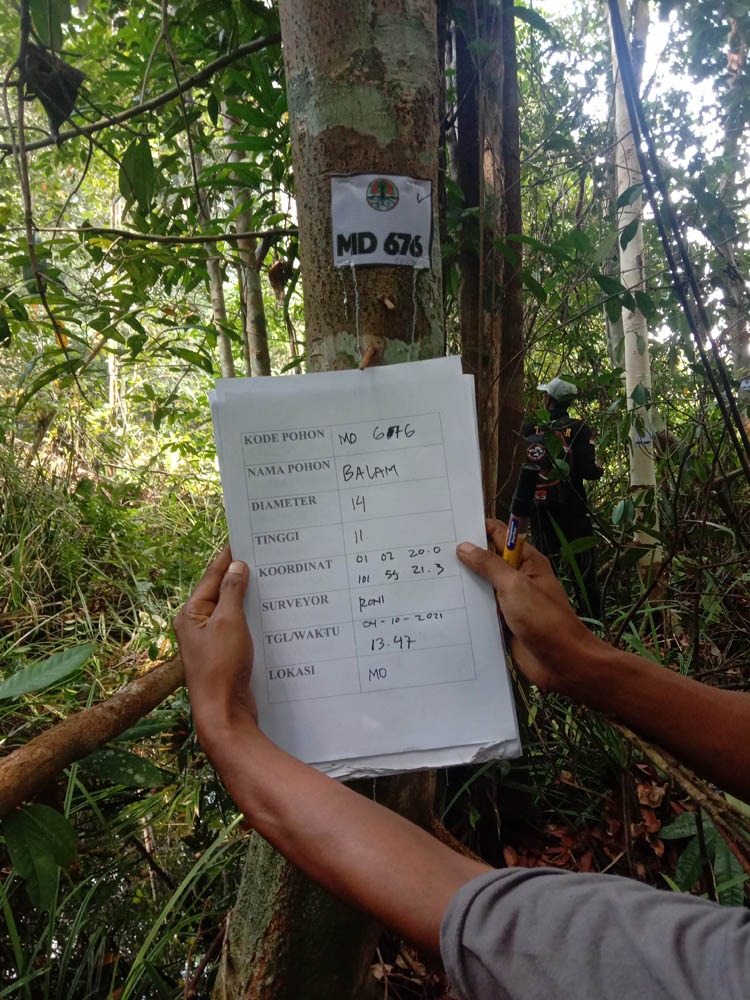 MD 676
KODE POHON MD 676
NAMA POHON BALAM
DIAMETER 14
TINGGI 11
KOORDINAT 01 02 20.0
101 55 21.3
SURVEYOR RONI
TGL/WAKTU 04-10-2021
13.47
LOKASI MD